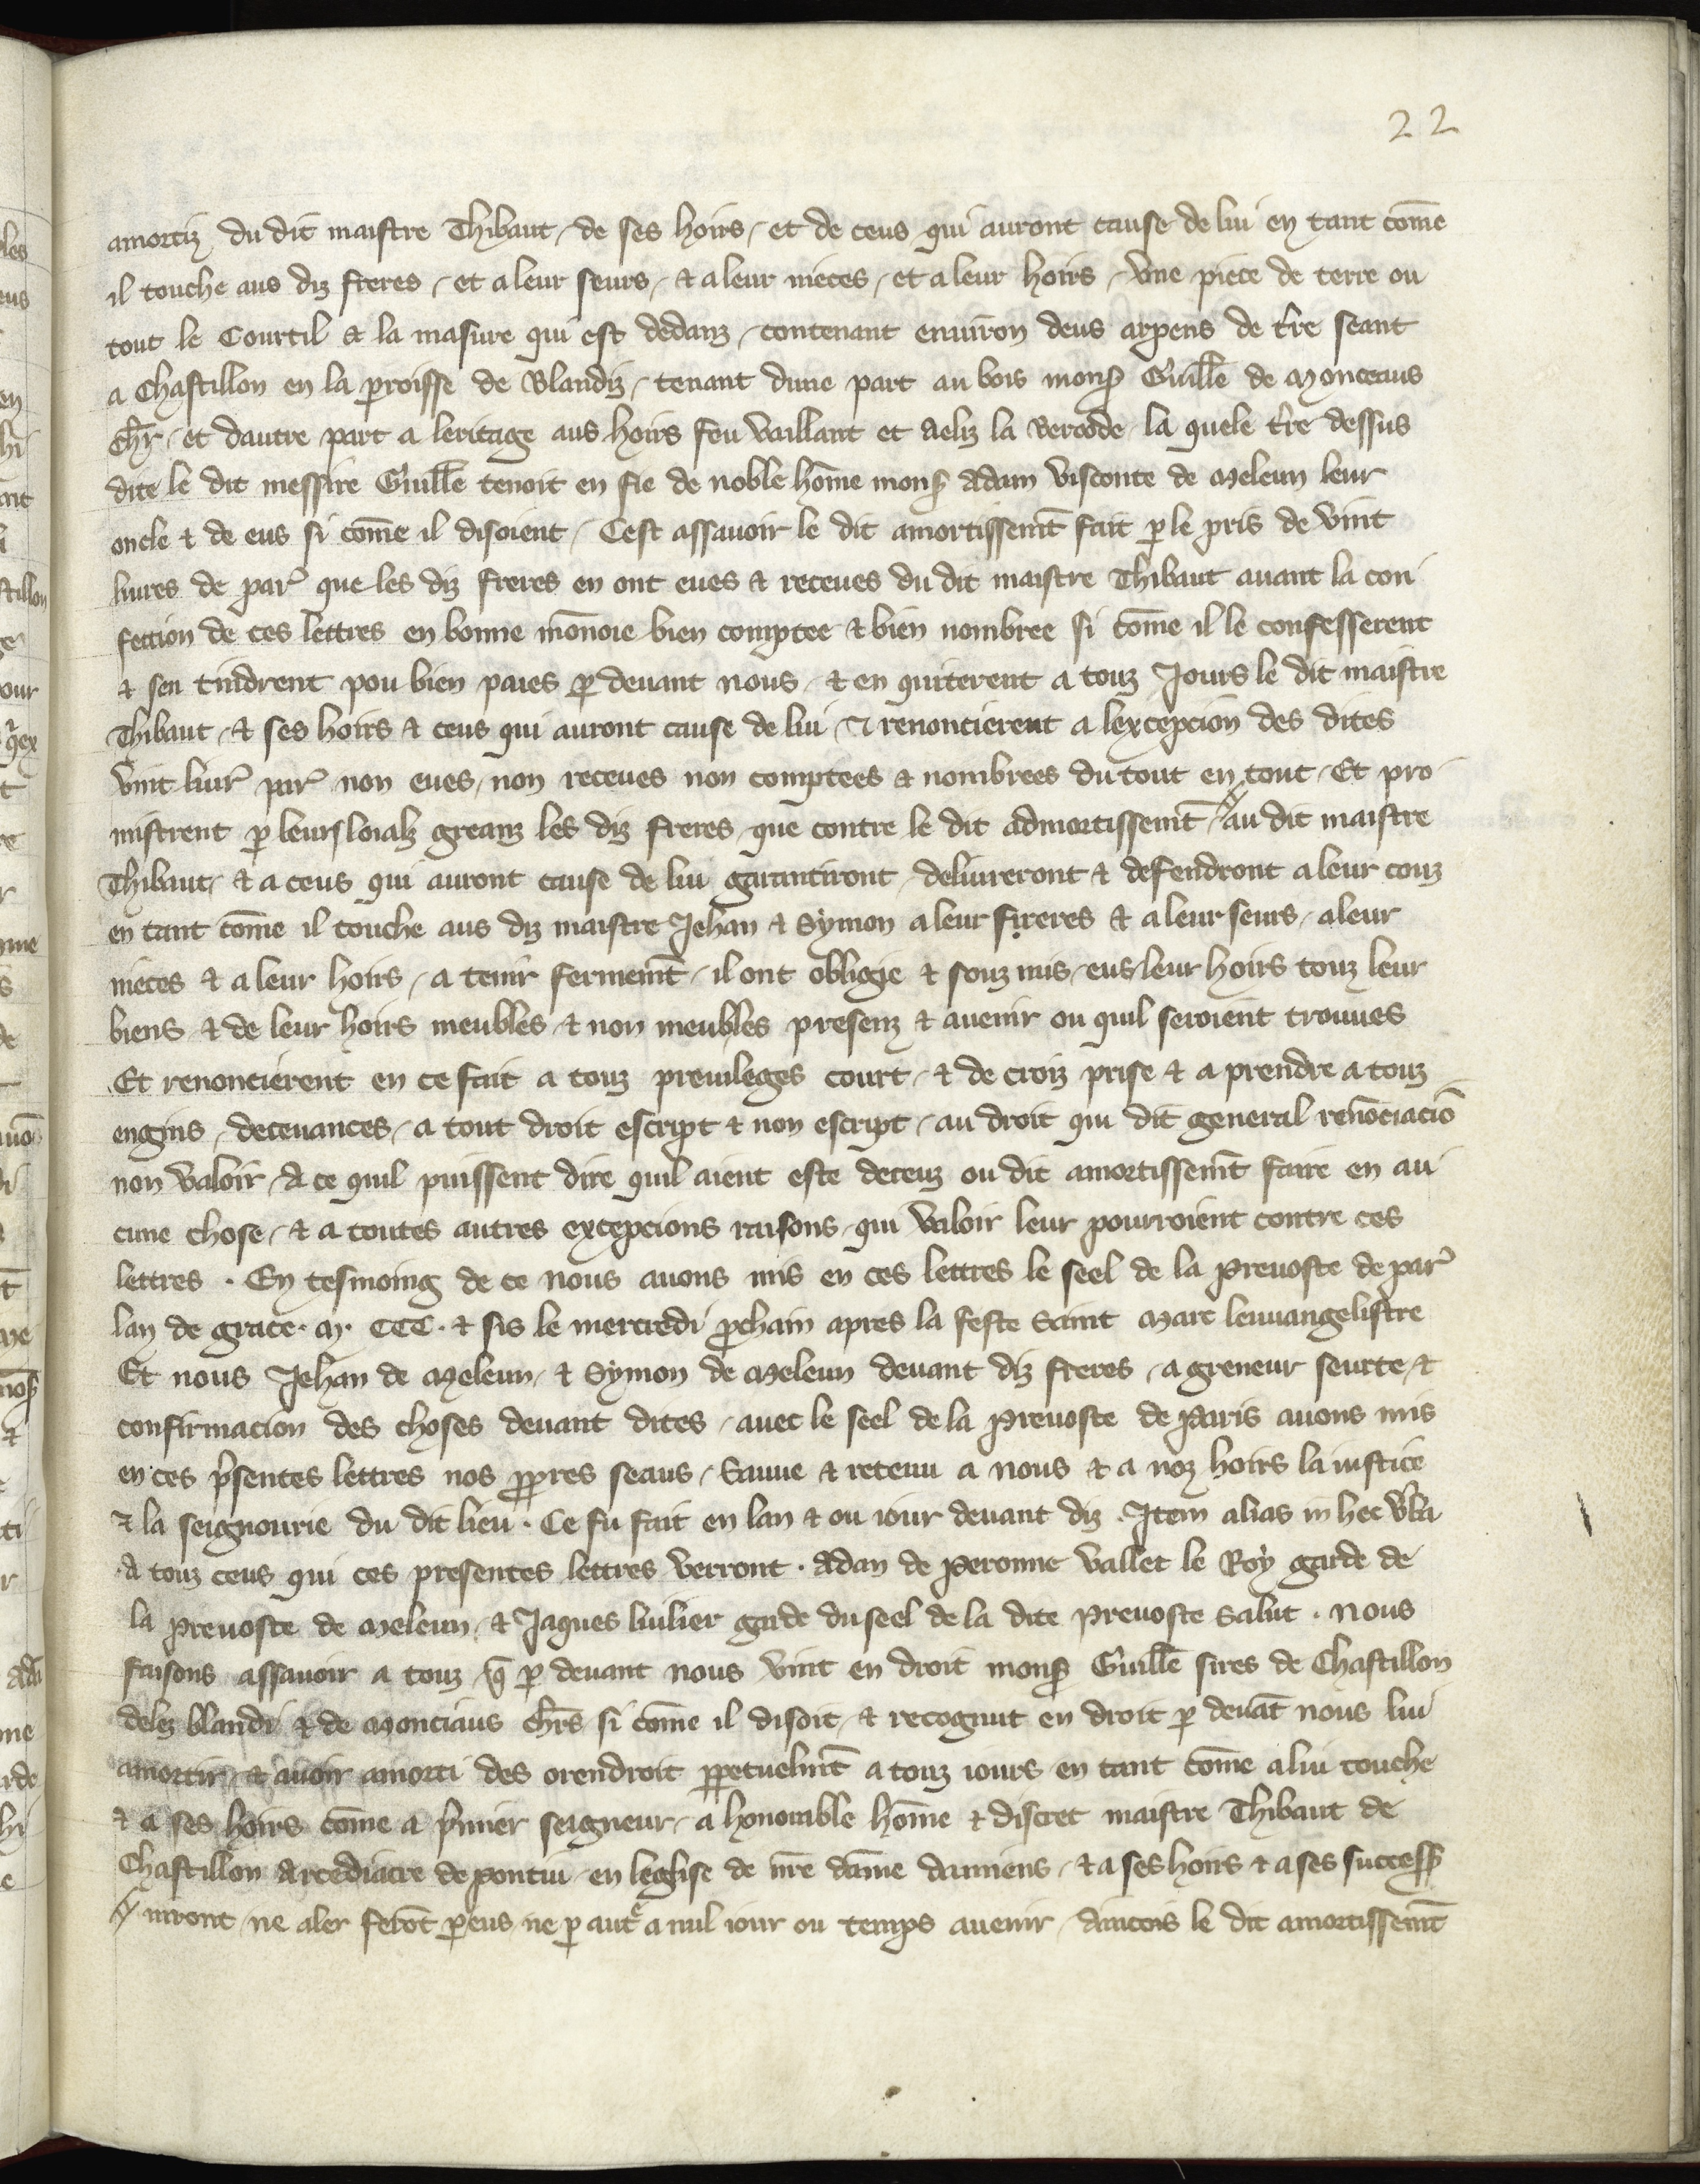 22
amortiz du dit maistre Thibaut / de ses hoirs / et de ceus qui auront cause de lui en tant com̄e
il touche aus diz freres / et a leur seurs / & a leur nieces / et a leur hoirs / vne piece de terre ou
tout le Courtil & la masure qui est dedanz / contenant enuiron deus arpens de t̾re seant
a Chastillon en la ꝑroisse de Blandiz / tenant dune part au bois monsꝭ Guill̄e de Monceaus
ch̄r / et dautre part a leritage aus hoirs feu Vaillant et Aeliz la Bercode la quele t̾re dessus
dite le dit messire Guill̄e tenoit en fie de noble hom̄e monsꝭ Adam visconte de Meleun leur
oncle & de eus si com̄e il disoient / Cest assauoir le dit amortissem̄t fait ꝑ le pris de vint
liures de par̾ que les diz freres en ont eues & receues du dit maistre Thibaut auant la con
fection de ces lettres en bonne mōnoie bien comptee & bien nombree si com̄e il le confesserent
& sen tindrent pou bien paies ꝑ deuant nous / & en quiterent a touz Jours le dit maistre
Thibaut / & ses hoirs & ceus qui auront cause de lui / & renoncierent a lexcepcion des dites
vint liur̾ par̾ non eues / non receues non comptees & nombrees du tout en tout / Et pro
mistrent ꝑ leurs loialz greanz les diz freres / que contre le dit admortissem̄t // au dit maistre
Thibaut / & a ceus qui auront cause de lui garantiront / deliureront & defendront a leur couz
en tant com̄e il touche aus diz maistre Jehan & Symon a leur freres & a leur seurs / a leur
nieces & a leur hoirs / a tenir fermem̄t / il ont obligie & souzmis / eus leur hoirs touz leur
biens & de leur hoirs meubles & non meubles presenz & auenir ou quil seroient trouues
Et renoncierent en ce fait a touz preuileges court / & de croiz prise & a prendre a touz
engins / deceuances / a tout droit escript & non escript / au droit qui dit general renōciaciō
non valoir / A ce quil puissent dire quil aient este deceuz ou dit amortissem̄t faire en au
cune chose / & a toutes autres excepcions raisons / qui valoir leur pourroient contre ces
lettres . En tesmoing de ce nous auons mis en ces lettres le seel de la Preuoste de par̾
lan de grace . M . CCC . & sis le mercredi ꝓchain apres la feste Saint Marc leuuangelistre
Et nous Jehan de Meleun / & Symon de Meleun deuant diz freres / a greneur seurte / &
confirmacion des choses deuant dites / auec le seel de la Preuoste de Paris auons mis
en ces p̾sentes lettres nos ꝓpres seaus / Sauue & retenu a nous & a noz hoirs la iustice
& la seignourie du dit lieu . Ce fu fait en lan & ou iour deuant diz . Item alias in hec v̾ba
A touz ceus qui ces presentes lettres verront . Adan de Peronne vallet le Roy garde de
la Preuoste de Meleun / & Jaques liulier garde du seel de la dite Preuoste Salut . Nous
faisons assauoir a touz / q̄ ꝑ deuant nous vint en droit monsꝭ Guill̄e sires de Chastillon
delez blandi & de Monciaus ch̄rs si com̄e il disoit / & recognut en droit ꝑ deuāt nous lui
amortir / & auoir amorti des orendroit ꝑpetuelm̄t a touz iours en tant com̄e a lui touche
& a ses hoirs com̄e a p̾mier seigneur / a honorable hom̄e & discret maistre Thibaut de
Chastillon Arcediacre de pontiu / en leglise de nr̄e dame damiens / & a ses hoirs & a ses successꝭ
// niront / ne aler ferōt ꝑ eus / ne ꝑ autͤ a nul iour ou temps auenir / aincois le dit amortissem̄t